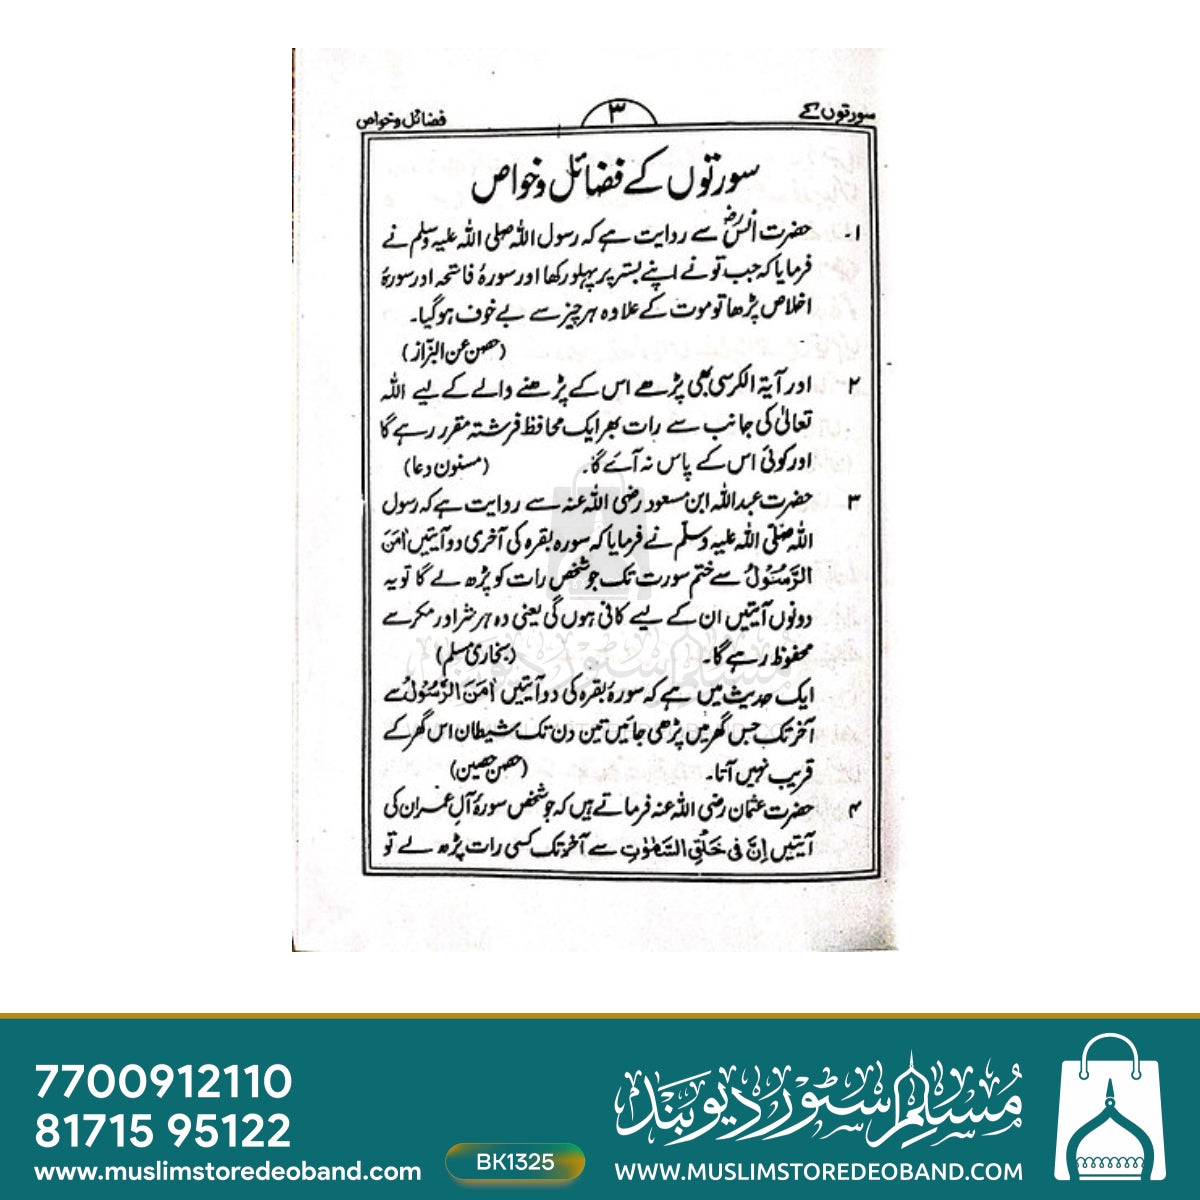 سورتوں کے
۳
فضائل وخواص
سورتوں کے فضائل وخواص
۱۔ حضرت انسؓ سے روایت ہے کہ رسول اللہ صلی اللہ علیہ وسلم نے
فرمایا کہ جب تو نے اپنے بستر پر پہلو رکھا اور سورۂ فاتحہ اور سورۂ
اخلاص پڑھا تو موت کے علاوہ ہر چیز سے بے خوف ہوگیا۔
(حصن عن البزاز)
۲ اور آیۃ الکرسی بھی پڑھے اس کے پڑھنے والے کے لیے اللہ
تعالیٰ کی جانب سے رات بھر ایک محافظ فرشتہ مقرر رہے گا
اور کوئی اس کے پاس نہ آئے گا۔ (مسنون دعا)
۳ حضرت عبداللہ ابن مسعود رضی اللہ عنہ سے روایت ہے کہ رسول
اللہ صلّی اللہ علیہ وسلّم نے فرمایا کہ سورہ بقرہ کی آخری دو آیتیں اٰمَنَ
الرَّسُوْلُ سے ختم سورت تک جو شخص رات کو پڑھ لے گا تو یہ
دونوں آیتیں ان کے لیے کافی ہوں گی یعنی وہ ہر شر اور مکر سے
محفوظ رہے گا۔ (بخاری مسلم)
ایک حدیث میں ہے کہ سورۂ بقرہ کی دو آیتیں اٰمَنَ الرَّسُوْلُ سے
آخر تک جس گھر میں پڑھی جائیں تین دن تک شیطان اس گھر کے
قریب نہیں آتا۔ (حصن حصین)
۴ حضرت عثمان رضی اللہ عنہ فرماتے ہیں کہ جو شخص سورۂ آل عمران کی
آیتیں اِنَّ فِیْ خَلْقِ السَّمٰوٰتِ سے آخر تک کسی رات پڑھ لے تو
مسلم سٹور دیوبند
7700912110
81715 95122
www.muslimstoredeoband.com
BK1325
مُسلم سٹور دیوبند
WWW.MUSLIMSTOREDEOBAND.COM